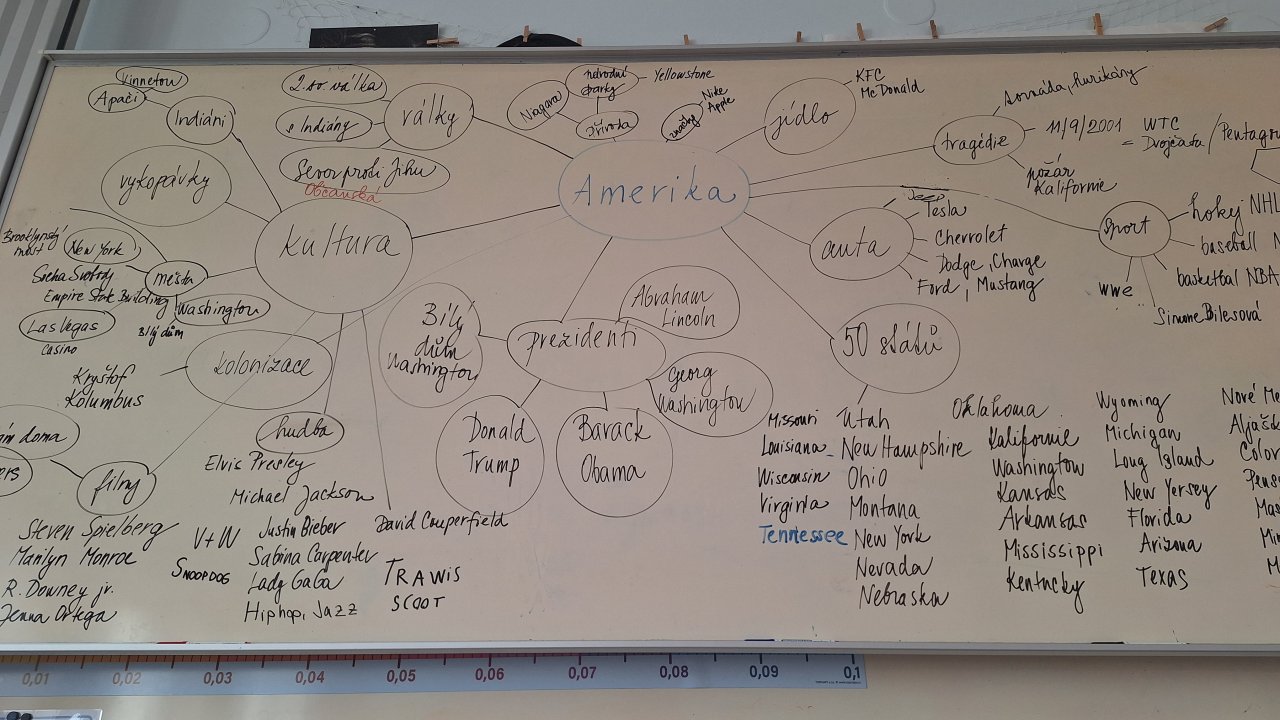 Vinnetou
Apači
Indiáni
2.sv.válka
s Indiány
války
Sever proti Jihu
Občanská
vykopávky
kultura
Niagara
národní
parky
Yellowstone
příroda
značky
Nike
Apple
jídlo
KFC
McDonald
Amerika
tragédie
tornáda, hurikány
11/9/2001 = WTC
= Dvojčata / Pentagon
požár
Kalifornie
auta
Jeep
Tesla
Chevrolet
Dodge, Charge
Ford, Mustang
sport
hokej NHL
baseball
basketbal NBA
wwe
Simone Bilesová
Brooklynský
most
New York
města
Socha Svobody
Empire State Building
Washington
Bílý dům
Las Vegas
casino
kolonizace
Kryštof
Kolumbus
Bílý
dům
Washington
prezidenti
Abraham
Lincoln
Georg
Washington
Donald
Trump
Barack
Obama
50 států
Missouri
Louisiana
Wisconsin
Virginia
Tennessee
Utah
New Hampshire
Ohio
Montana
New York
Nevada
Nebraska
Oklahoma
Kalifornie
Washington
Kansas
Arkansas
Mississippi
Kentucky
Wyoming
Michigan
Long Island
New Yersey
Florida
Arizona
Texas
Nové Me
Aljašk
Color
doma
filmy
Steven Spielberg
Marilyn Monroe
R. Downey jr.
Jenna Ortega
hudba
Elvis Presley
Michael Jackson
V+W
Snoopdog
Justin Bieber
Sabina Carpenter
Lady GaGa
Hiphop, Jazz
David Couperfield
TRAWIS
SCOOT
0,01 0,02 0,03 0,04 0,05 0,06 0,07 0,08 0,09 0,1